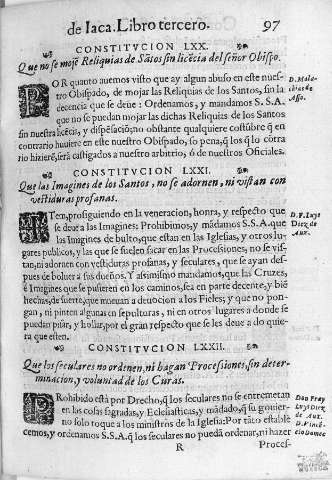 de Iaca. Libro tercero. 97
CONSTITVCION LXX.
Que no se mojē Reliquias de Sātos sin licēcia del señor Obispo.
POR quanto auemos visto que ay algun abuso en este nuestro
Obispado, de mojar las Reliquias de los Santos, sin la
decencia que se deue: Ordenamos, y mandamos S.S.A.
que no se puedan mojar las dichas Reliquias de los Santos
sin nuestra licēcia, y dispēsaciō, no obstante qualquiere costūbre q̄ en
contrario huuiere en este nuestro Obispado, so pena, q̄ los q̄ lo cōtra
rio hizierē, serā castigados a nuestro arbitrio, ò de nuestros Oficiales.
D. Mala-
chias de
Asso.
CONSTITVCION LXXI.
Que las Imagines de los Santos, no se adornen, ni vistan con
vestiduras profanas.
ITem, prosiguiendo en la veneracion, honra, y respecto que
se deue a las Imagines; Prohibimos, y mādamos S.S.A. que
las Imagines de bulto, que estan en las Iglesias, y otros lu-
gares publicos, y las que se suelen sacar en las Procesiones, no se vis-
tan, ni adornen con vestiduras profanas, y seculares, que se ayan des-
pues de boluer a sus dueños. Y assimismo mandamos, que las Cruzes,
è Imagines que se pusieren en los caminos, sea en parte decente, y biē
hechas, de suerte, que mueuan a deuocion a los Fieles; y que no pon-
gan, ni pinten algunas en sepulturas, ni en otros lugares a donde se
puedan pisar, y hollar, por el gran respecto que se les deue a do quie-
ra que esten.
D. F. Luys
Diez de
Aux.
CONSTITVCION LXXII.
Que los seculares no ordenen, ni hagan Procesiones, sin deter-
minacion, y voluntad de los Curas.
PRohibido està por Drecho, q̄ los seculares no se entremetan
en las cosas sagradas, y Eclesiasticas, y mādado, q̄ su gouier-
no solo toque a los ministros de la Iglesia: Por tāto estable
cemos, y ordenamos S.S.A. q̄ los seculares no puedā ordenar, ni hazer
Don Fray
Luys Diez
de Aux.
D. Vincē-
cio Domec
R Proces-